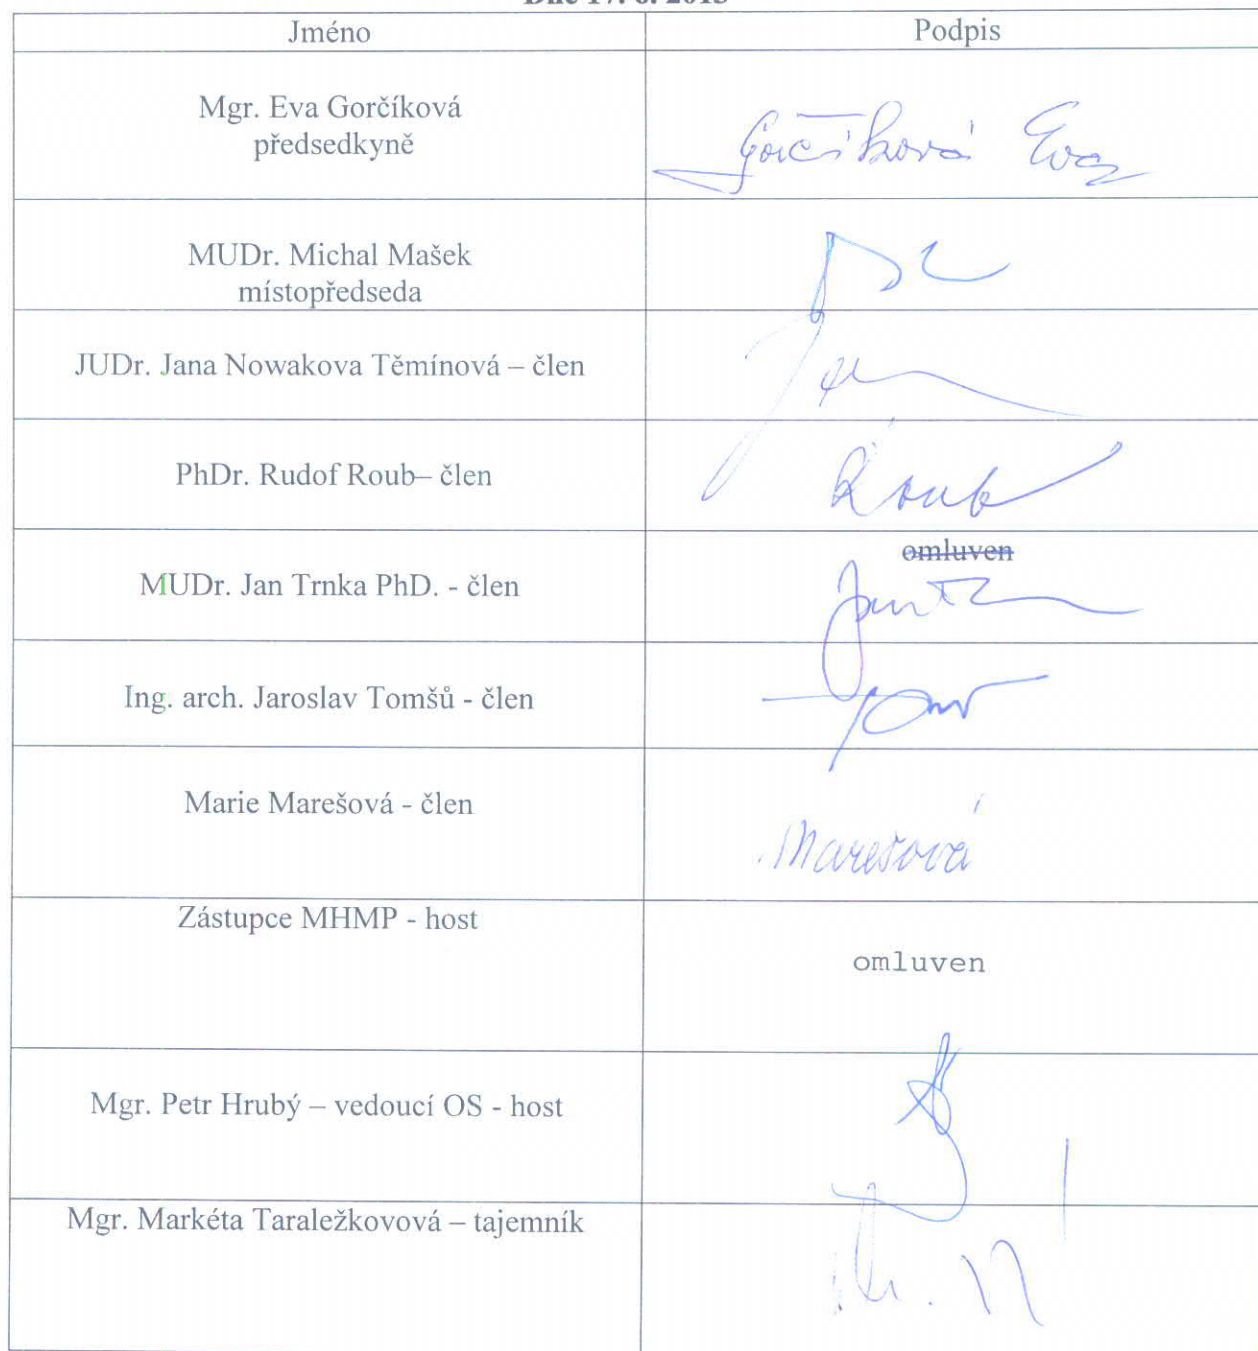 Dne 17. 6. 2013
Jméno Podpis
Mgr. Eva Gorčíková
předsedkyně
Gorčíková Eva
MUDr. Michal Mašek
místopředseda
JUDr. Jana Nowakova Těmínová – člen
PhDr. Rudof Roub– člen
Roub
omluven
MUDr. Jan Trnka PhD. - člen
Ing. arch. Jaroslav Tomšů - člen
Marie Marešová - člen
Marešová
Zástupce MHMP - host
omluven
Mgr. Petr Hrubý – vedoucí OS - host
Mgr. Markéta Taraležkovová – tajemník